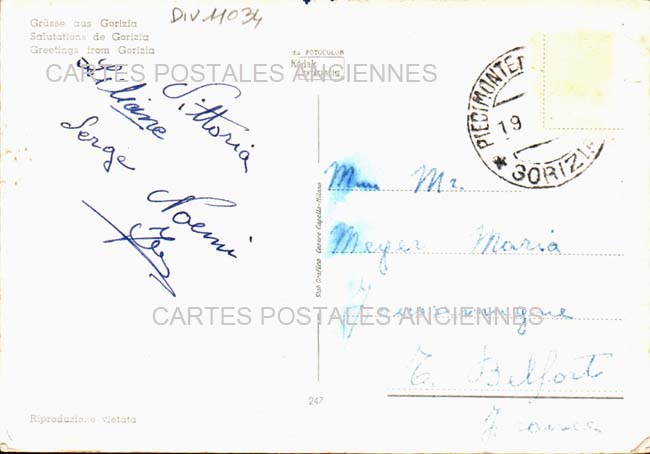 DIV 11034
Grüsse aus Gorizia
Salutations de Gorizia
Greetings from Gorizia
FOTOCOLOR
Kodak
EKTACHROME
CARTES POSTALES ANCIENNES
Liliane
Vittoria
Serge
Noemi
PIEDIMONTE
19
* GORIZIA
Mme Mr.
Meyer Maria
T. Belfort
France
CARTES POSTALES ANCIENNES
Stab. Grafico Cesare Capello-Milano
247
Riproduzione vietata